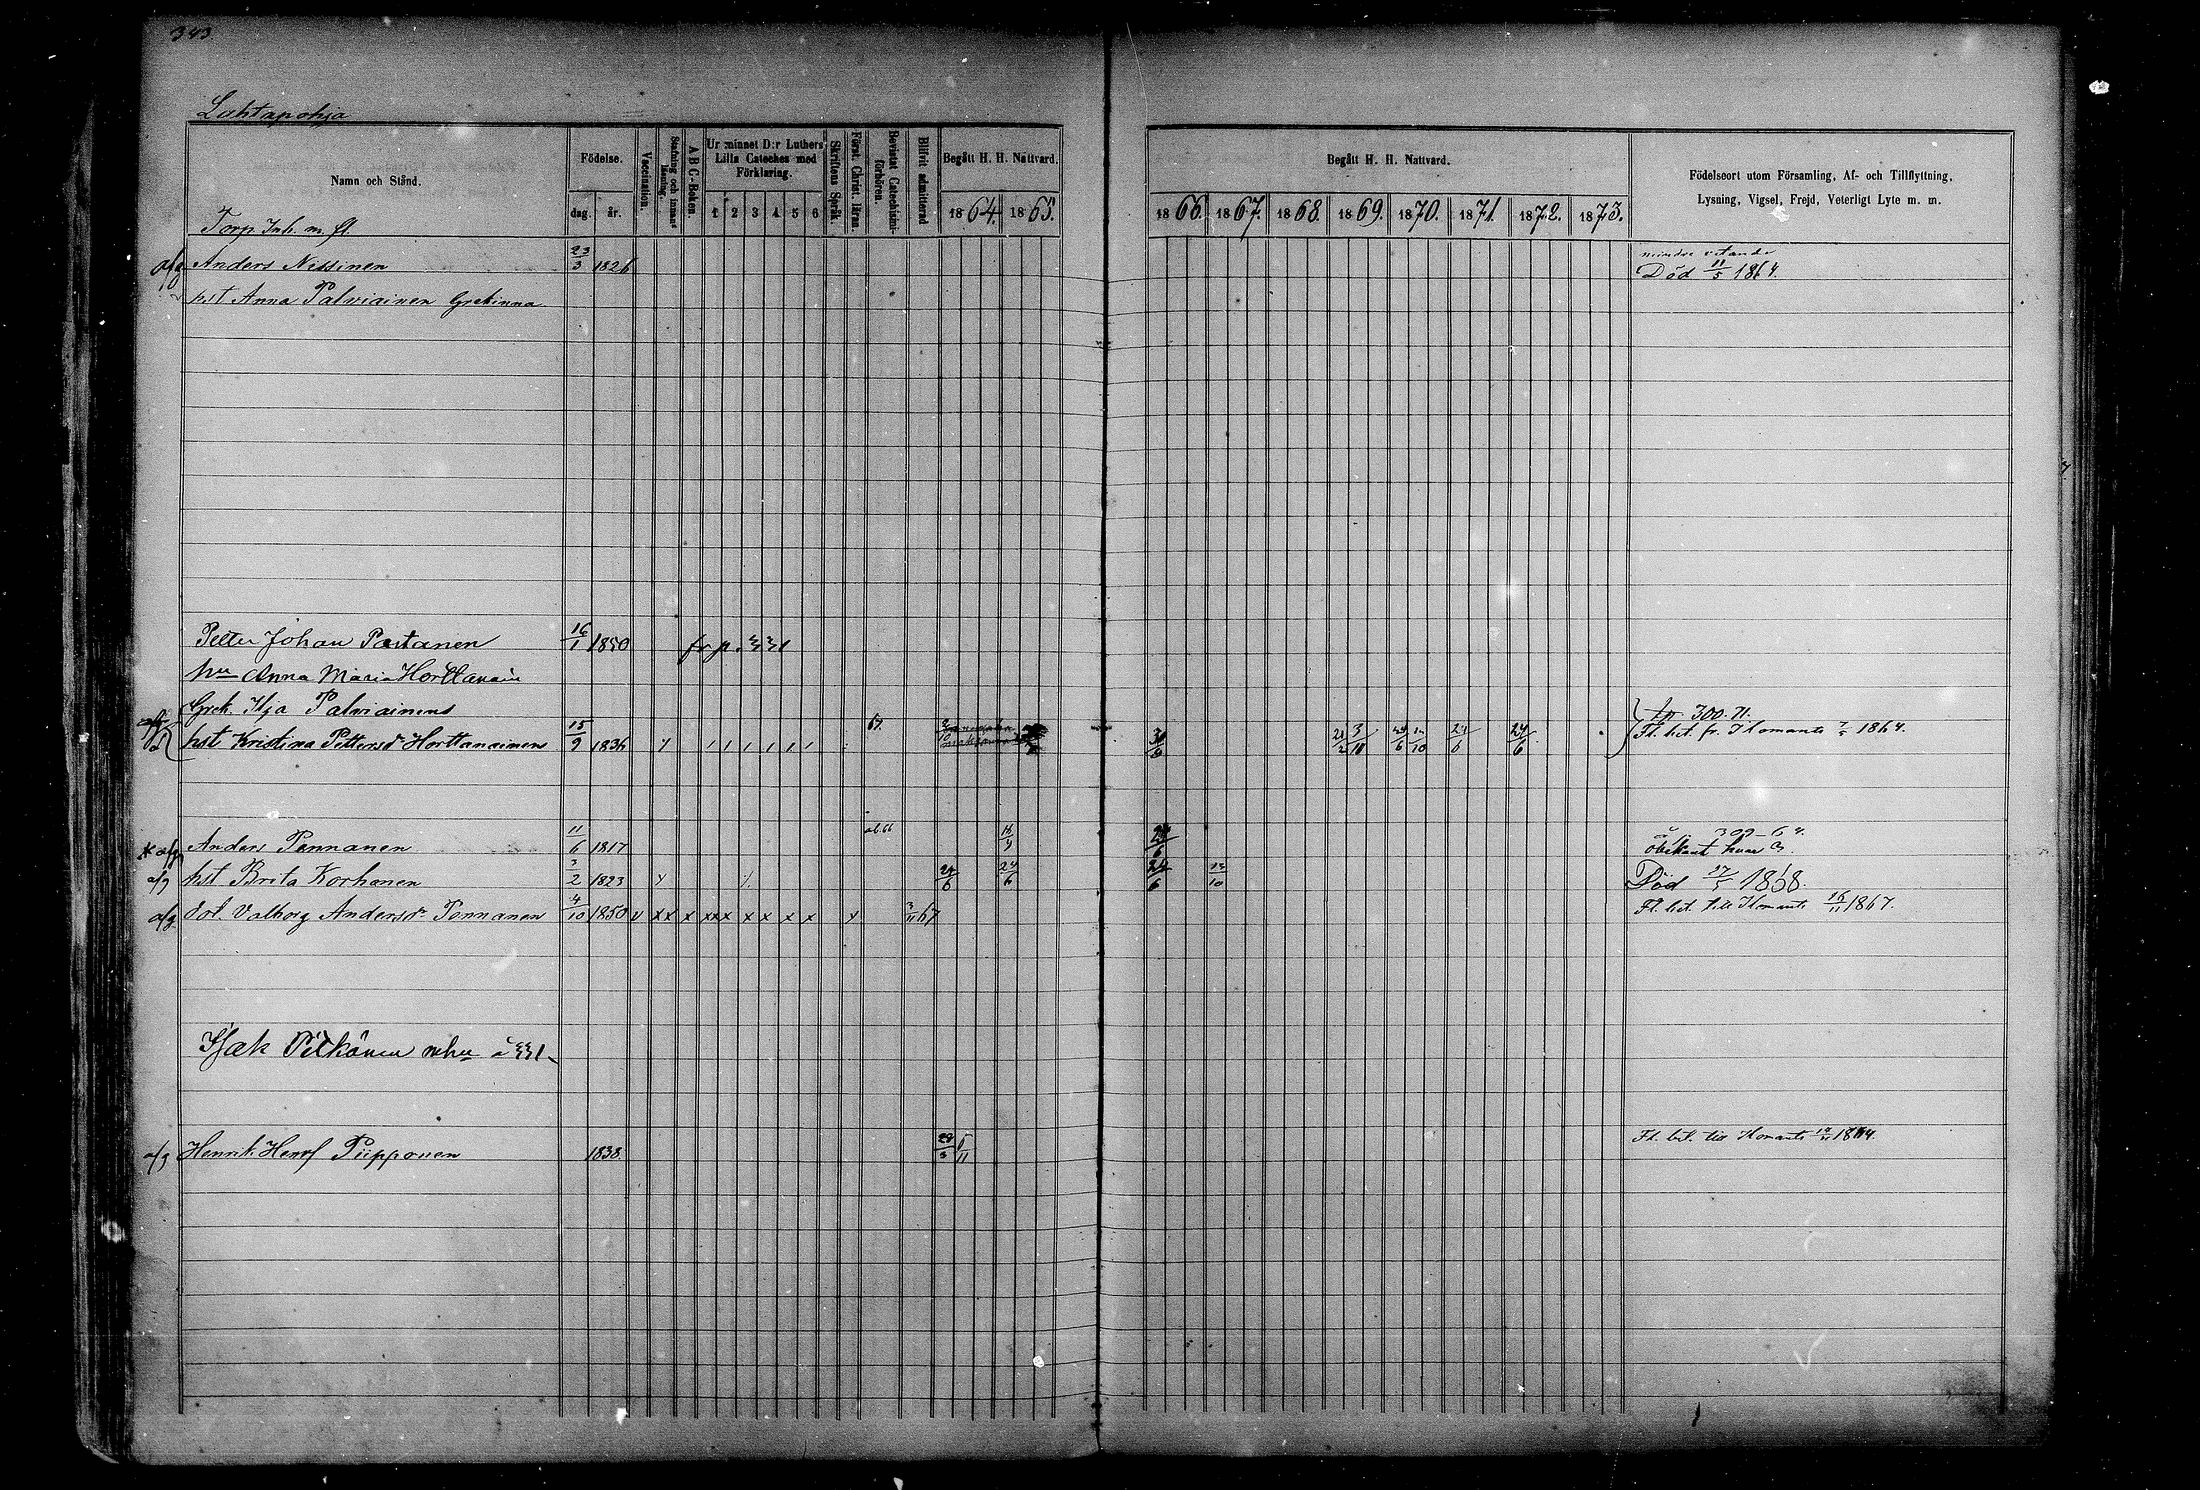 343
Luhtapohja
Namn och Stånd.
Födelse.
dag. år.
Vaccination.
Stafning och innantläsning.
A B C-Boken.
Ur minnet D:r Luthers Lilla Cateches med Förklaring.
1 2 3 4 5 6
Skriftens Språk.
Först. Christ. läran.
Bevistat Catechismi-förhören.
Blifvit admitterad
Begått H. H. Nattvard.
1864. 1865.
Begått H. H. Nattvard.
1866. 1867. 1868. 1869. 1870. 1871. 1872. 1873.
Födelseort utom Församling, Af- och Tillflyttning,
Lysning, Vigsel, Frejd, Veterligt Lyte m. m.
Torp Inh. m. fl.
Anders Nissinen 23/3 1826 Död 11/5 1864
hst Anna Palviainen Grekinna
Petter Johan Partanen 16/1 1850 fr p. 331
hu Anna Maria Horttanain
Grek. Ilja Palviainens 300. 71.
hst Kristina Pettersdr Horttanainens 15/9 1836 21/2 3/11 24/6 24/6 Fl. bet. fr. Ilomants 1864.
a/g Anders Pennanen 11/6 1817 18/9 24/6 300-64
obekant hvar
a/g hst Brita Korhonen 3/2 1823 x 24/6 24/6 24/6 13/10 Död 27/5 1868.
a/g dot. Valborg Andersdr Pennanen 4/10 1850 v x x x x x x x x x x x 3/11 67 Fl. bet. till Ilomants 16/11 1867.
Isak Pitkänen mhu å 331
a/g Henrik Henrs Piipponen 1838. 28/3 6/11 Fl. bet. till Ilomants 1864.